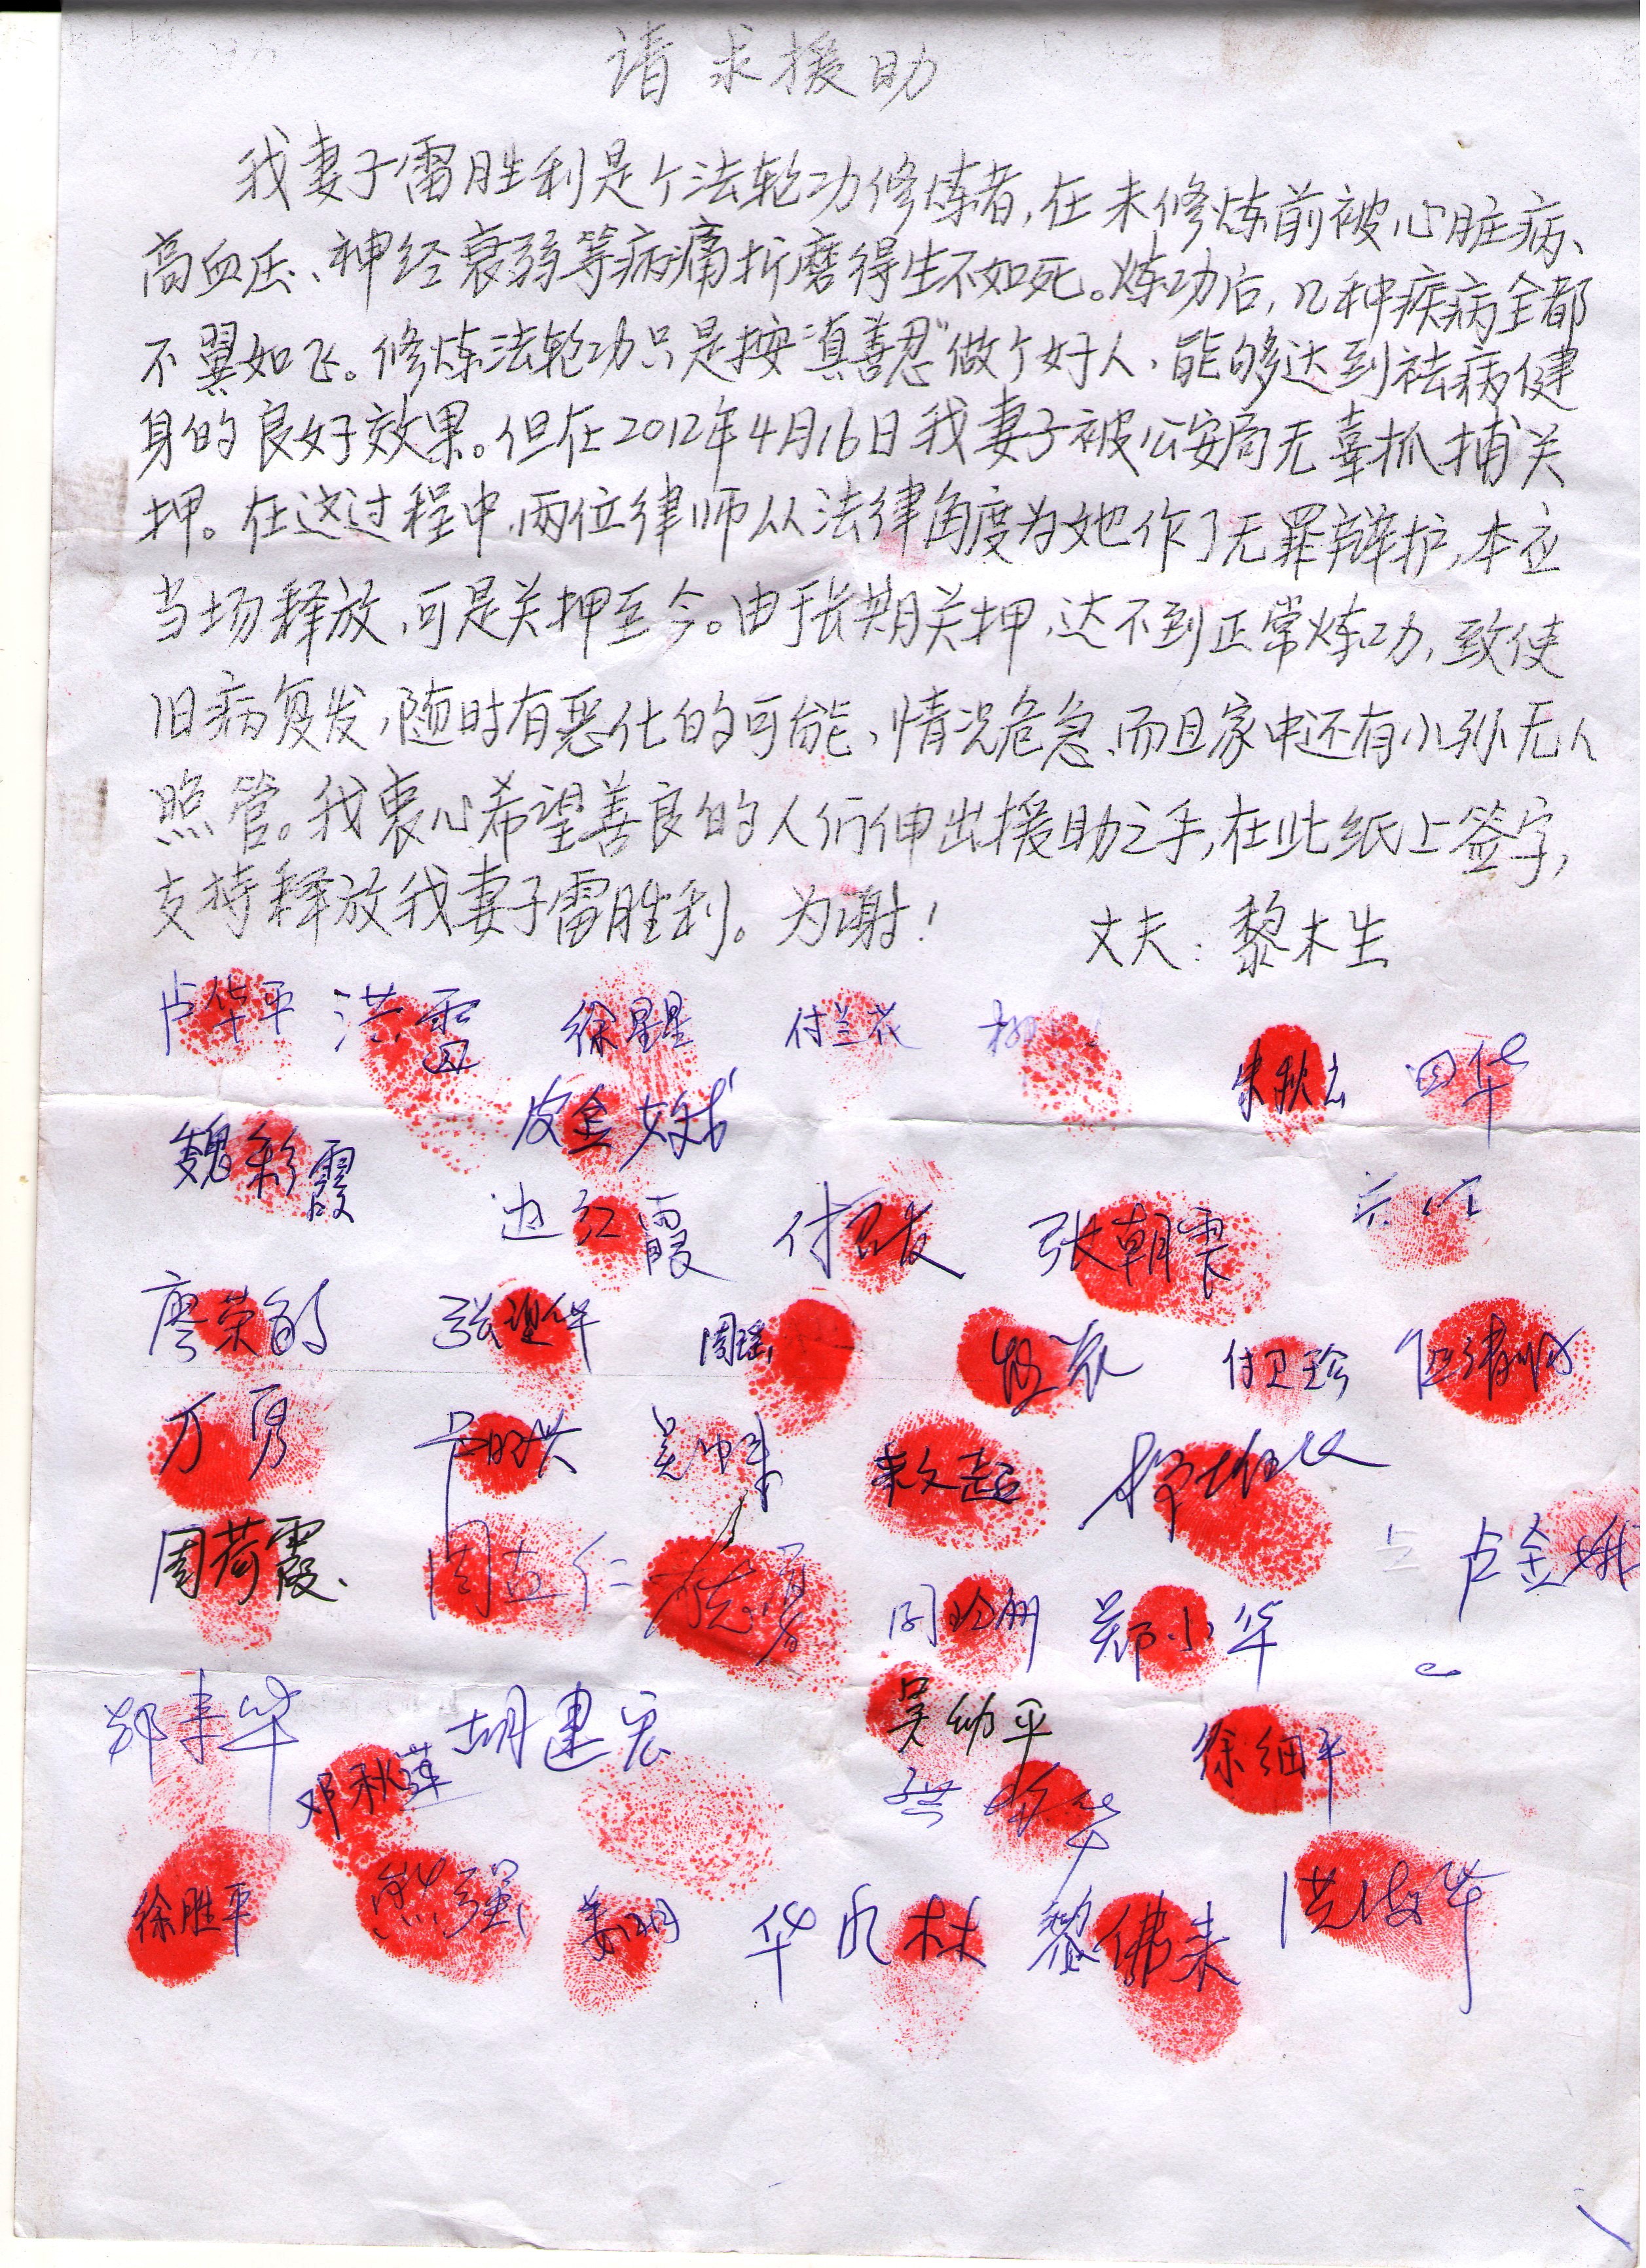 请求援助
我妻子雷胜利是个法轮功修炼者,在未修炼前被心脏病、
高血压、神经衰弱等病痛折磨得生不如死。炼功后,几种疾病全都
不翼如飞。修炼法轮功只是按“真善忍”做个好人,能够达到祛病健
身的良好效果。但在2012年4月16日我妻子被公安局无辜抓捕关
押。在这过程中,两位律师从法律角度为她作了无罪辩护,本应
当场释放,可是关押至今。由于长期关押,达不到正常炼功,致使
旧病复发,随时有恶化的可能、情况危急,而且家中还有小孙无人
照管。我衷心希望善良的人们伸出援助之手,在此纸上签字,
支持释放我妻子雷胜利。为谢! 丈夫:黎木生
卢华平 洪雪 徐星星 付兰花 朱秋云 田华
魏彩霞 皮金娥
边红霞 付召发 张朝霞
廖荣 张理华 周瑶 付卫珍
万勇 朱文起
周荷霞. 周立仁 卢金娥
周冷 郑小华
郑丰华 胡建宏 吴幼平 徐细平
邓秋莲 洪 华
徐胜平 熊强 姜明 华凡林 黎佛来 洪俊华